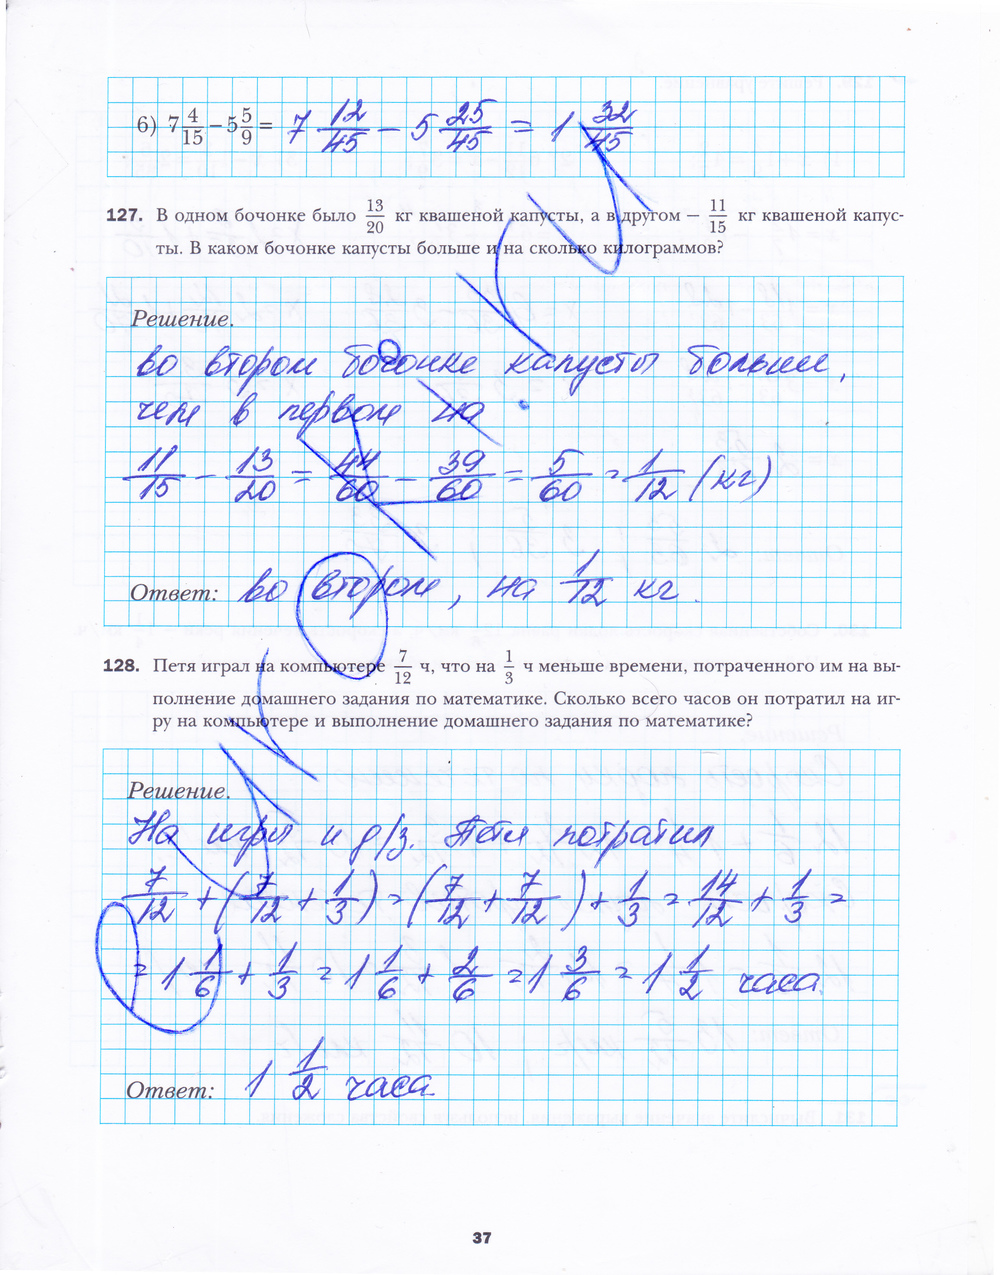 6) 7 4/15 − 5 5/9 = 7 12/45 − 5 25/45 = 1 32/45
127. В одном бочонке было 13/20 кг квашеной капусты, а в другом – 11/15 кг квашеной капус-
ты. В каком бочонке капусты больше и на сколько килограммов?
Решение.
во втором бочонке капусты больше,
чем в первом на
11/15 − 13/20 = 44/60 − 39/60 = 5/60 = 1/12 (кг)
Ответ: во втором, на 1/12 кг.
128. Петя играл на компьютере 7/12 ч, что на 1/3 ч меньше времени, потраченного им на вы-
полнение домашнего задания по математике. Сколько всего часов он потратил на иг-
ру на компьютере и выполнение домашнего задания по математике?
Решение.
На игры и д/з. Петя потратил
7/12 + (7/12 + 1/3) = (7/12 + 7/12) + 1/3 = 14/12 + 1/3 =
= 1 1/6 + 1/3 = 1 1/6 + 2/6 = 1 3/6 = 1 1/2 часа.
Ответ: 1 1/2 часа
37